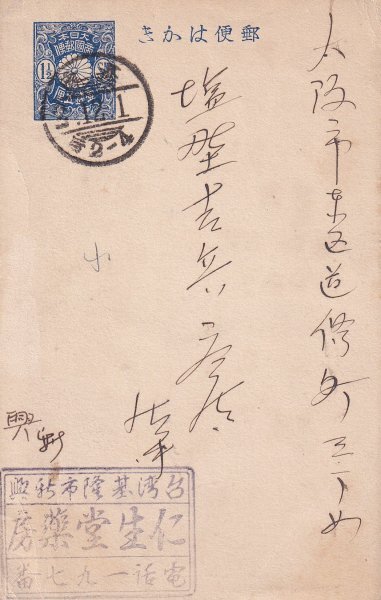 郵便はかき
大日本帝國郵便
1½
12.1
2-4
大阪市東区道修町三丁目
塩野吉兵衛商店
小
興新
台湾基隆市新興
仁生堂藥房
電話一九七番